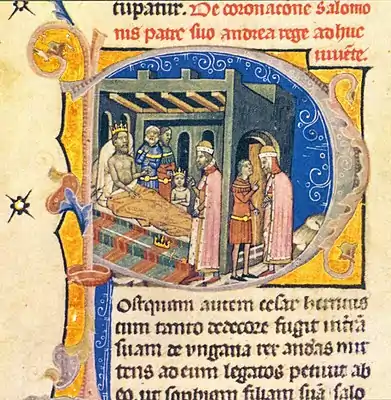 cupatur. De coronacōne Salomo
nis patre suo andrea rege adhuc
uiuēte.
Postquam autem cesar henricus
cum tanto dedecore fugit
suam de vngaria rex andreas mit
tens ad eum legatos petiuit ab
eo, ut sophiam filiam suā salo